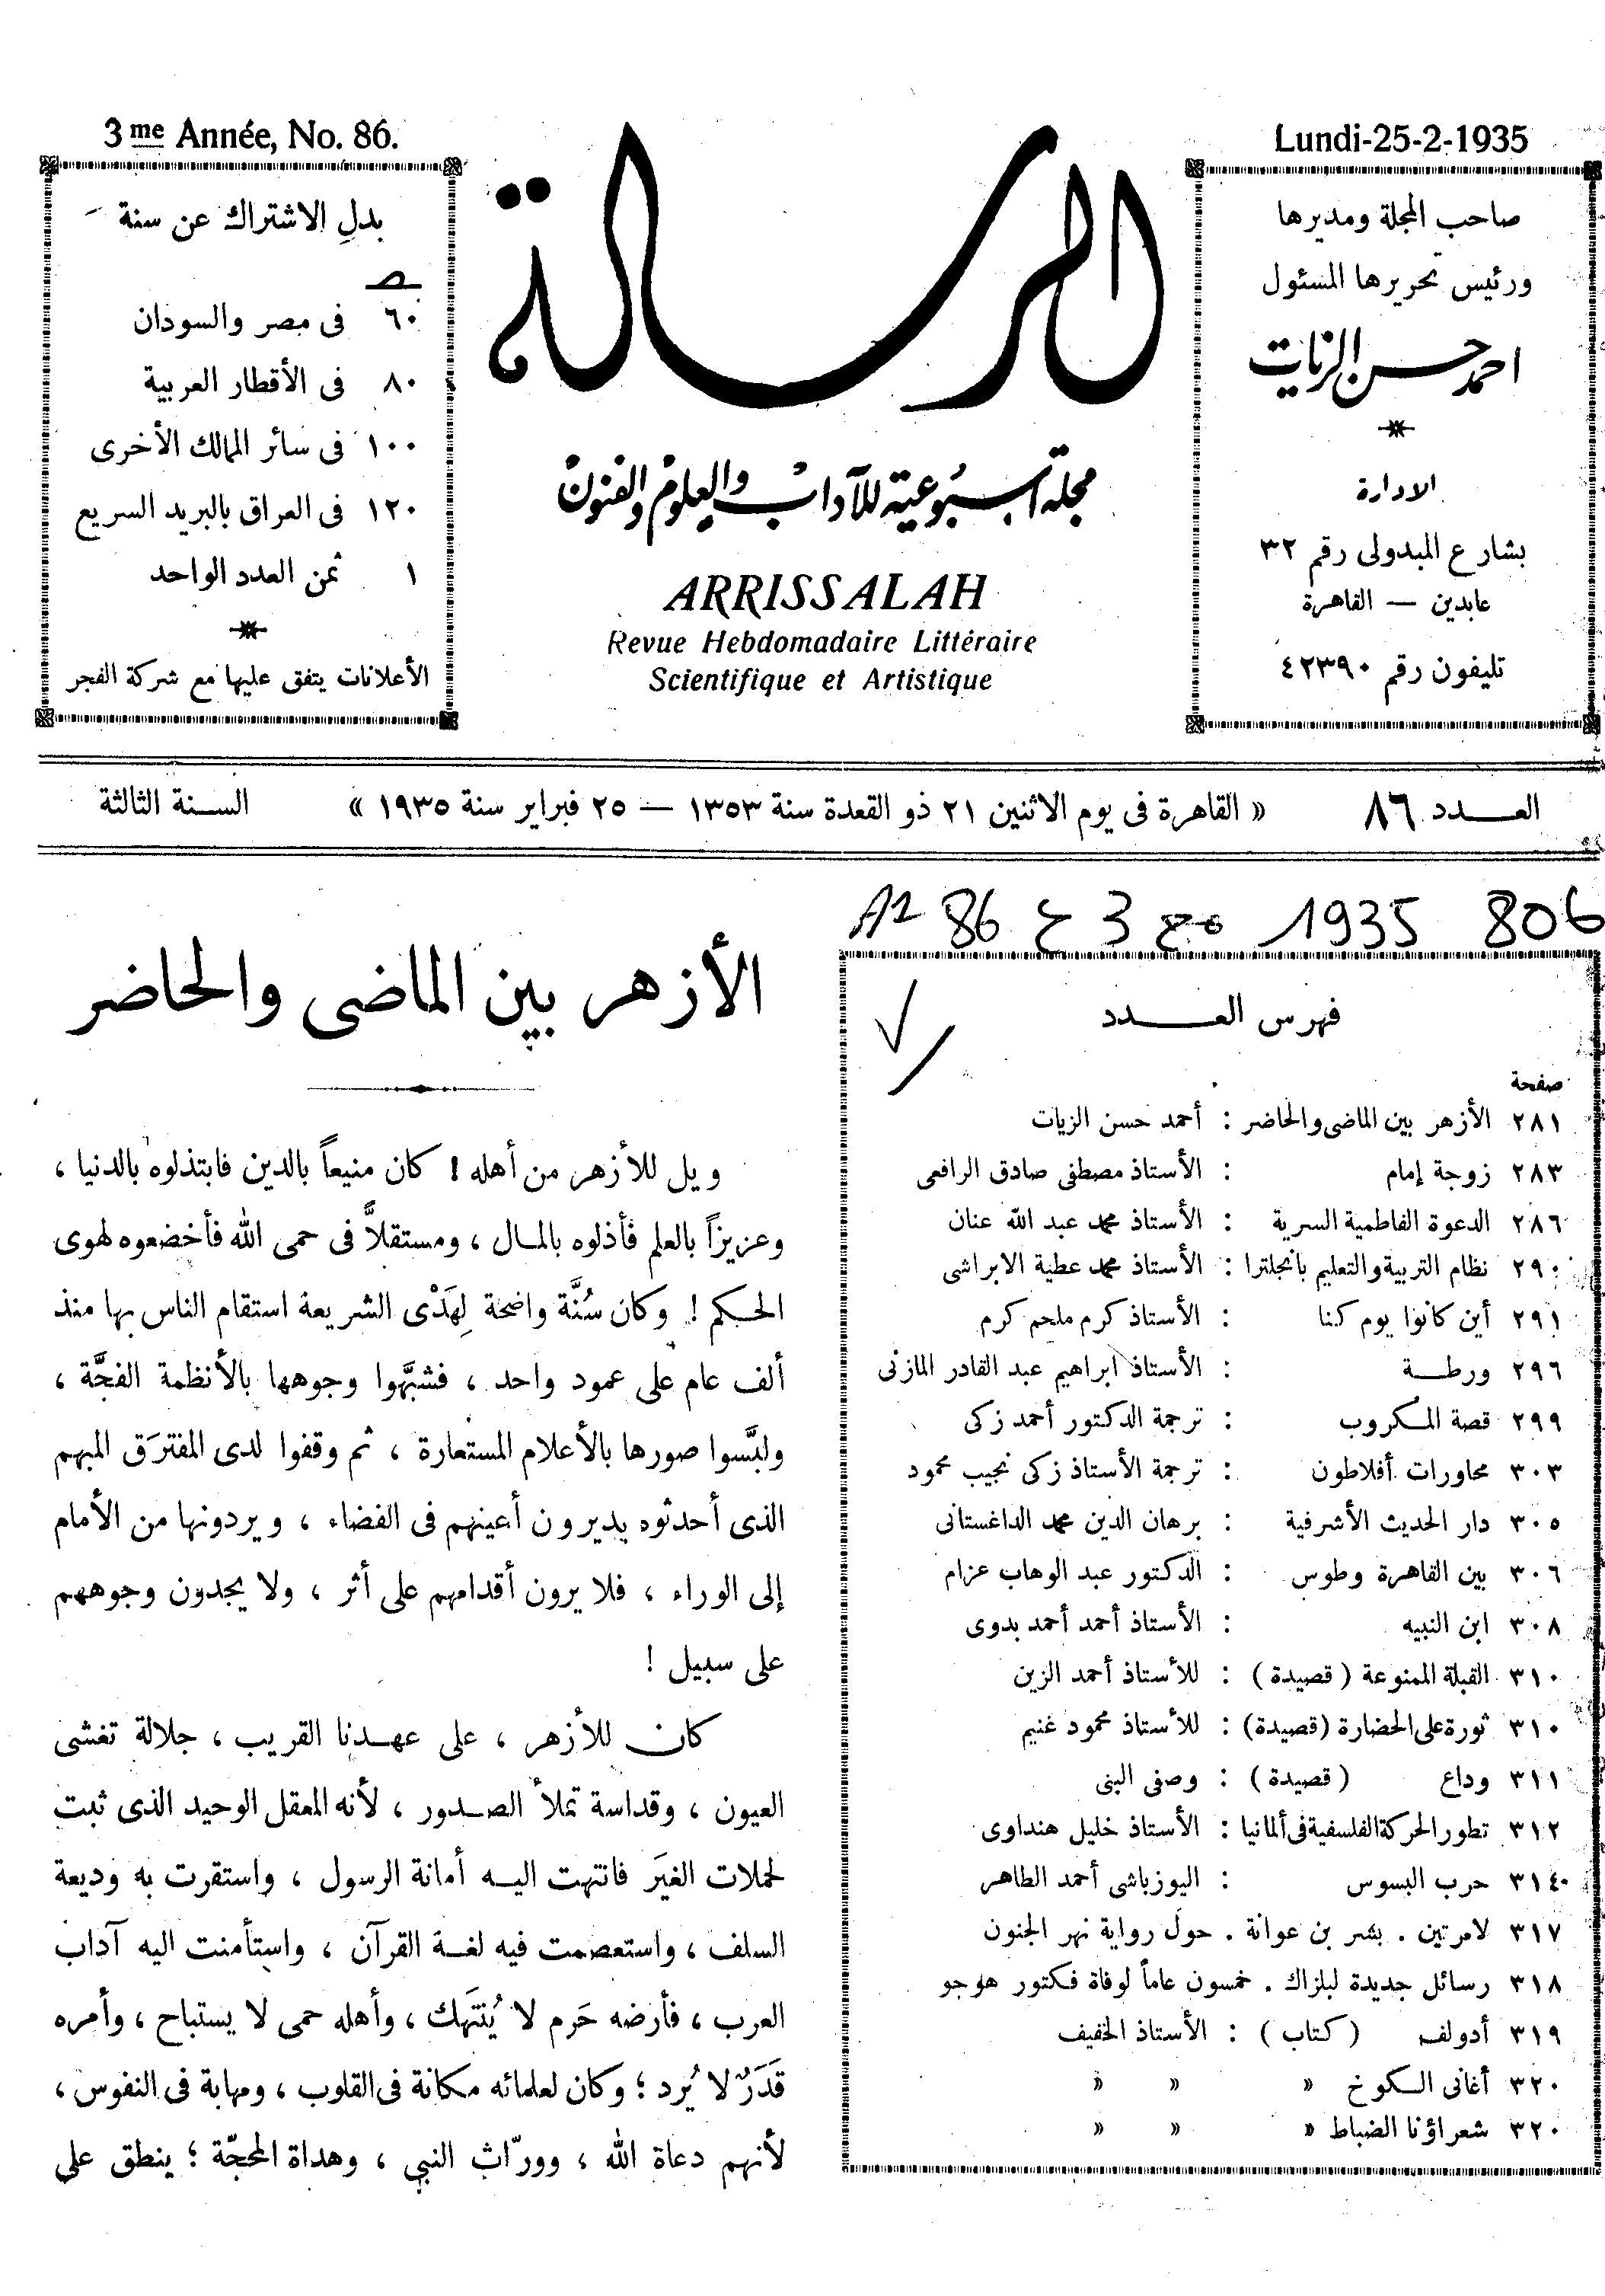 3me Année, No. 86.
Lundi-25-2-1935
صاحب المجلة ومديرها
ورئيس تحريرها المسئول
احمد حسن الزيات
الادارة
بشارع المبدولى رقم ٣٢
عابدين — القاهرة
تليفون رقم ٤٢٣٩٠
الرسالة
مجلة أسبوعية للآداب والعلوم والفنون
ARRISSALAH
Revue Hebdomadaire Littéraire
Scientifique et Artistique
بدل الاشتراك عن سنة
٦٠ فى مصر والسودان
٨٠ فى الأقطار العربية
١٠٠ فى سائر الممالك الأخرى
١٢٠ فى العراق بالبريد السريع
١ ثمن العدد الواحد
الأعلانات يتفق عليها مع شركة الفجر
العـــدد ٨٦ « القاهرة فى يوم الاثنين ٢١ ذو القعدة سنة ١٣٥٣ — ٢٥ فبراير سنة ١٩٣٥ » السـنة الثالثة
86 ع 3 1935 806
فهرس العــــدد
صفحة
٢٨١ الأزهر بين الماضى والحاضر : أحمد حسن الزيات
٢٨٣ زوجة إمام : الأستاذ مصطفى صادق الرافعى
٢٨٦ الدعوة الفاطمية السرية : الأستاذ محمد عبد الله عنان
٢٩٠ نظام التربية والتعليم بانجلترا : الأستاذ محمد عطية الابراشى
٢٩١ أين كانوا يوم كنا : الأستاذ كرم ملحم كرم
٢٩٦ ورطـــة : الأستاذ ابراهيم عبد القادر المازنى
٢٩٩ قصة المكروب : ترجمة الدكتور أحمد زكى
٣٠٣ محاورات أفلاطون : ترجمة الأستاذ زكى نجيب محمود
٣٠٥ دار الحديث الأشرفية : برهان الدين محمد الداغستانى
٣٠٦ بين القاهرة وطوس : الدكتور عبد الوهاب عزام
٣٠٨ ابن النبيه : الأستاذ أحمد أحمد بدوى
٣١٠ القبلة الممنوعة ( قصيدة ) : للأستاذ أحمد الزين
٣١٠ ثورة على الحضارة (قصيدة) : للأستاذ محمود غنيم
٣١١ وداع ( قصيدة ) : وصفى البنى
٣١٢ تطور الحركة الفلسفية فى ألمانيا : الأستاذ خليل هنداوى
٣١٤ حرب البسوس : اليوزباشى أحمد الطاهر
٣١٧ لامرتين . بشر بن عوانة . حول رواية نهر الجنون
٣١٨ رسائل جديدة لبلزاك . خمسون عاماً لوفاة فكتور هوجو
٣١٩ أدولف ( كتاب ) : الأستاذ الخفيف
٣٢٠ أغانى الكوخ « « «
٣٢٠ شعراؤنا الضباط « « «
الأزهر بين الماضى والحاضر
ويل للأزهر من أهله ! كان منيعاً بالدين فابتذلوه بالدنيا ،
وعزيزاً بالعلم فأذلوه بالمـال ، ومستقلاًّ فى حمى الله فأخضعوه لهوى
الحكم ! وكان سُنَّة واضحة لِهَدْى الشريعة استقام الناس بها منذ
ألف عام على عمود واحد ، فشبَّهوا وجوهها بالأنظمة الفجَّة ،
ولبَّسوا صورها بالأعلام المستعارة ، ثم وقفوا لدى المفترَق المبهم
الذى أحدثوه يديرون أعينهم فى الفضاء ، ويردونها من الأمام
إلى الوراء ، فلا يرون أقدامهم على أثر ، ولا يجدون وجوههم
على سبيل !
كان للأزهر ، على عهـدنا القريب ، جلالة تغشى
العيون ، وقداسة تملأ الصـدور ، لأنه المعقل الوحيد الذى ثبت
لحملات الغيَر فانتهت اليـه أمانة الرسول ، واستقرت به وديعة
السلف ، واستعصمت فيه لغـة القرآن ، واستأمنت اليه آداب
العرب ، فأرضه حَرم لا يُنتَهك ، وأهله حمى لا يستباح ، وأمره
قَدَرٌ لا يُرد ؛ وكان لعلمائه مكانة فى القلوب ، ومهابة فى النفوس ،
لأنهم دعاة الله ، وورّاث النبي ، وهداة المحجّة ؛ ينطق على